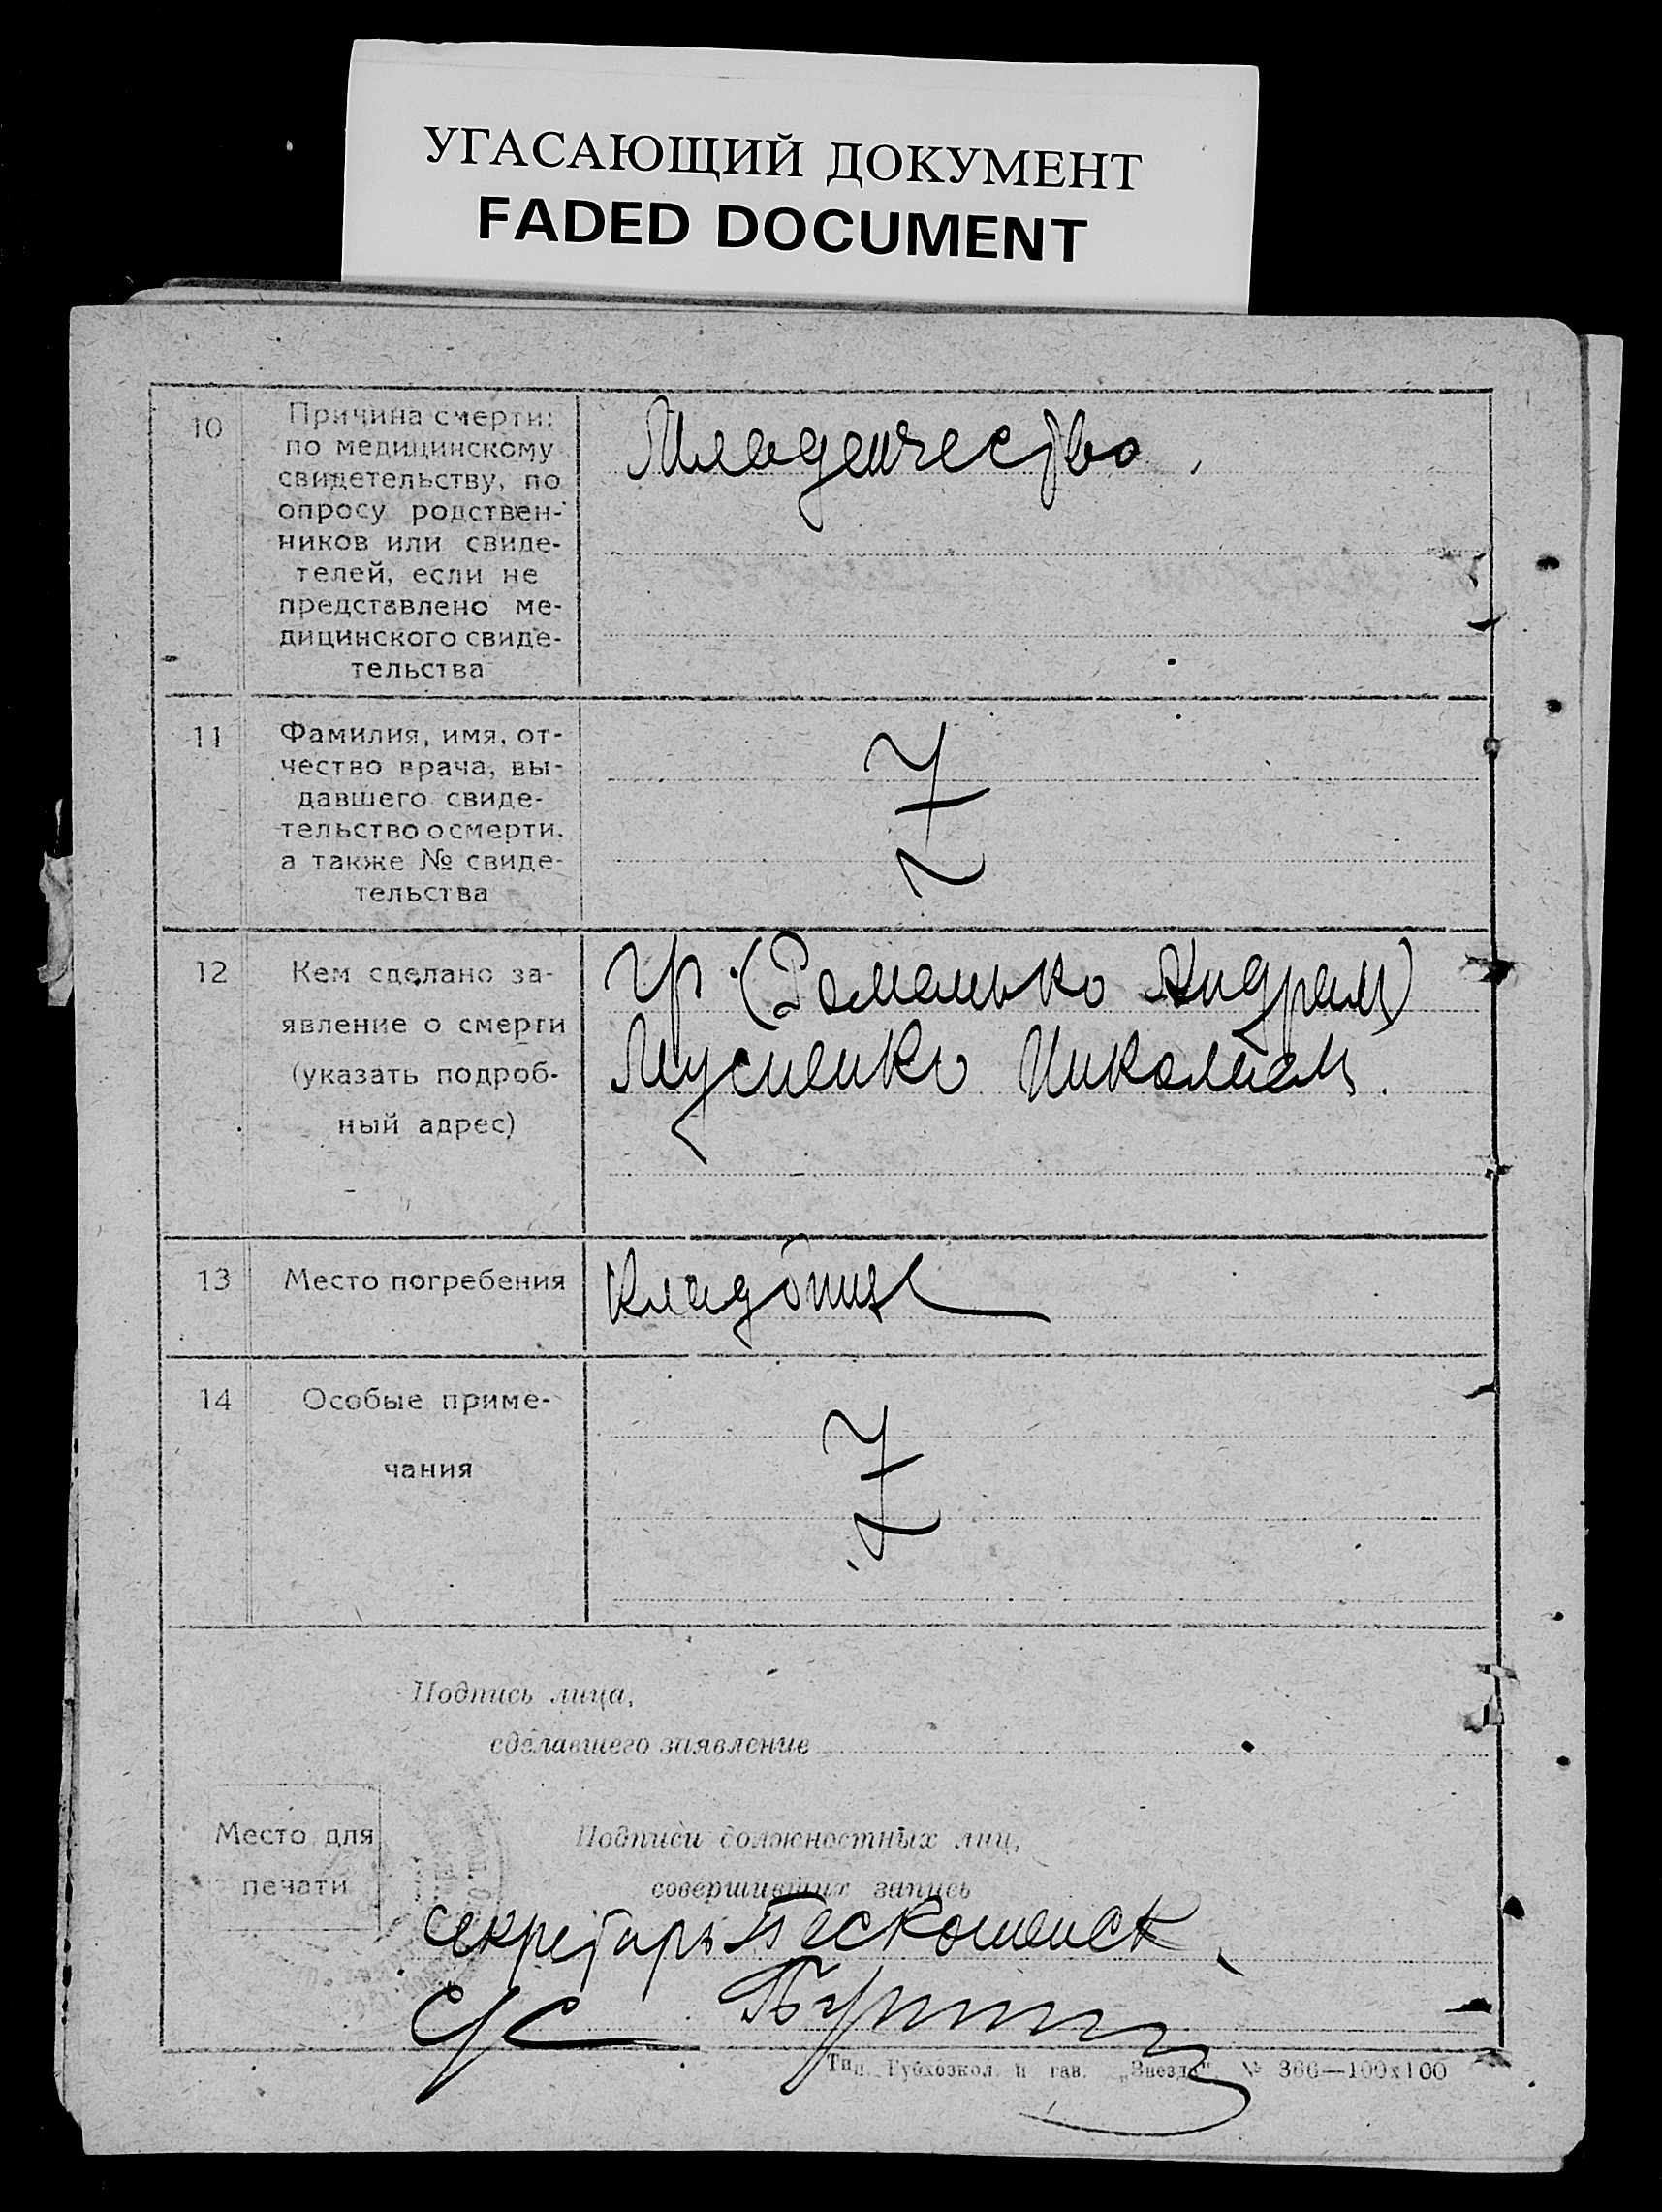 УГАСАЮЩИЙ ДОКУМЕНТ
FADED DOCUMENT
10
Причина смерти:
по медицинскому
свидетельству, по
опросу родствен-
ников или свиде-
телей, если не
представлено ме-
дицинского свиде-
тельства
Младенчество
11
Фамилия, имя, от-
чество врача, вы-
давшего свиде-
тельство о смерти,
а также № свиде-
тельства
12
Кем сделано за-
явление о смерти
(указать подроб-
ный адрес)
Гр. (Романько Андрей)
Мусиенко Николаем.
13
Место погребения
Кладбище
14
Особые приме-
чания
Подпись лица,
сделавшего заявление
Место для
печати
Подписи должностных лиц,
совершивших запись
Секретарь
с/с
Тип. Губхозкол. и гав. „Звезда" № 366—100x100